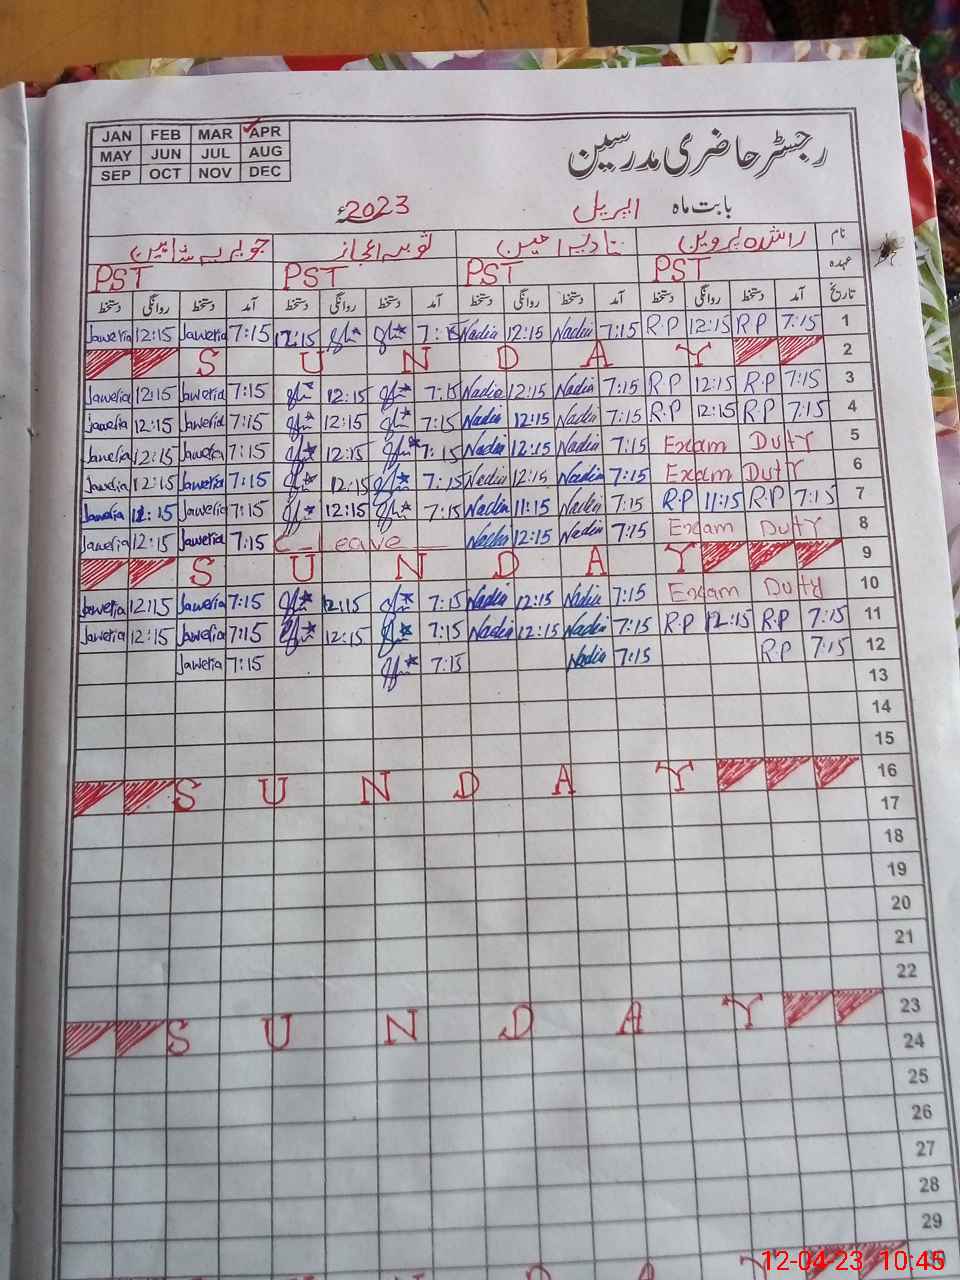 JAN FEB MAR APR
MAY JUN JUL AUG
SEP OCT NOV DEC
رجسٹر حاضری مدرسین
بابت ماہ اپریل 2023ء
نام راشدہ پروین نادیہ امین ثوبیہ اعجاز جویریہ شاہین
عہدہ PST PST PST PST
تاریخ آمد دستخط روانگی دستخط آمد دستخط روانگی دستخط آمد دستخط روانگی دستخط آمد دستخط روانگی دستخط
Jaweria 12:15 Jaweria 7:15 12:15 7:15 Nadia 12:15 Nadia 7:15 R.P 12:15 R.P 7:15 1
S U N D A Y 2
Jaweria 12:15 Jaweria 7:15 12:15 7:15 Nadia 12:15 Nadia 7:15 R.P 12:15 R.P 7:15 3
Jaweria 12:15 Jaweria 7:15 12:15 7:15 Nadia 12:15 Nadia 7:15 R.P 12:15 R.P 7:15 4
Jaweria 12:15 Jaweria 7:15 12:15 7:15 Nadia 12:15 Nadia 7:15 Exam Duty 5
Jaweria 12:15 Jaweria 7:15 12:15 7:15 Nadia 12:15 Nadia 7:15 Exam Duty 6
Jaweria 12:15 Jaweria 7:15 12:15 7:15 Nadia 11:15 Nadia 7:15 R.P 11:15 R.P 7:15 7
Jaweria 12:15 Jaweria 7:15 C_Leave Nadia 12:15 Nadia 7:15 Exam Duty 8
S U N D A Y 9
Jaweria 12:15 Jaweria 7:15 12:15 7:15 Nadia 12:15 Nadia 7:15 Exam Duty 10
Jaweria 12:15 Jaweria 7:15 12:15 7:15 Nadia 12:15 Nadia 7:15 R.P 12:15 R.P 7:15 11
Jaweria 7:15 7:15 Nadia 7:15 R.P 7:15 12
13
14
15
S U N D A Y 16
17
18
19
20
21
22
S U N D A Y 23
24
25
26
27
28
29
U N D A Y
12-04-23 10:45